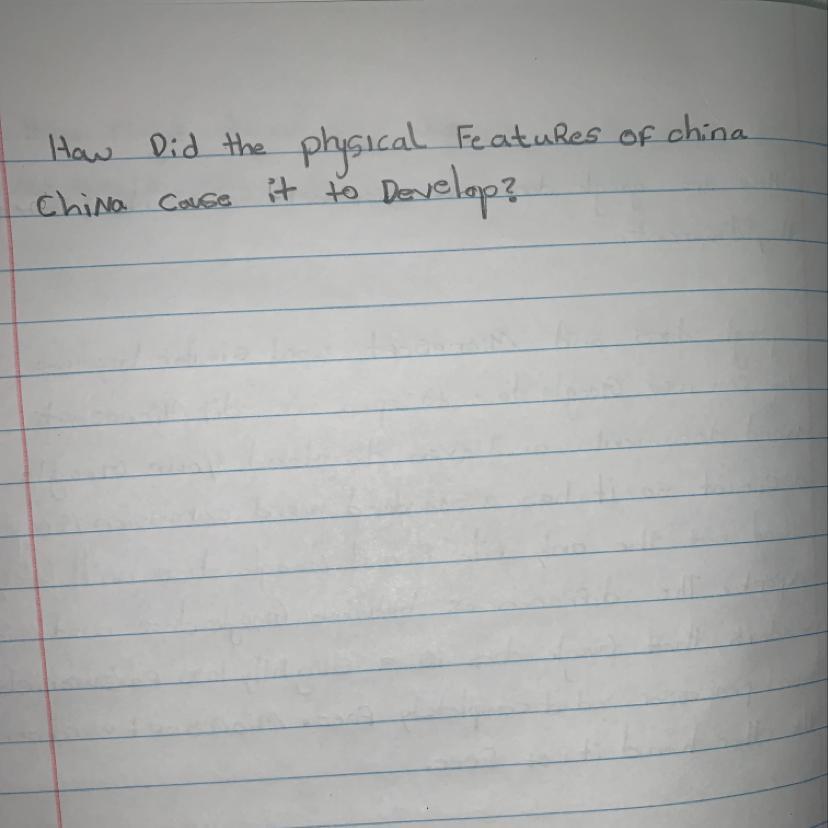 How Did the physical Features of china
China cause it to Develop?